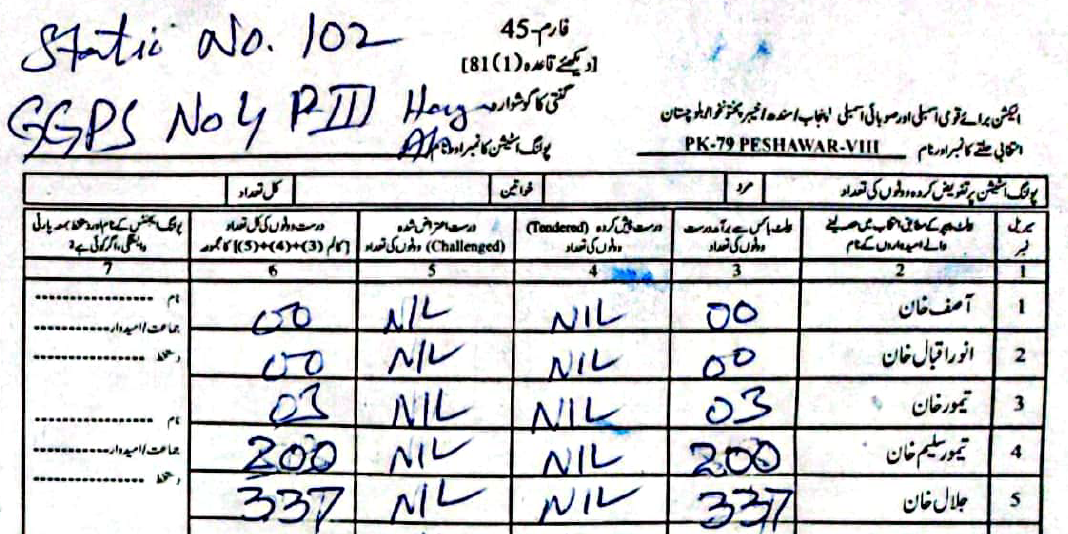 Static No. 102
فارم-45
[دیکھئے قاعدہ (1)81]
GGPS No 4 P-III
گنتی کا گوشوارہ
الیکشن برائے قومی اسمبلی اور صوبائی اسمبلی پنجاب/سندھ/خیبر پختونخوا/بلوچستان
انتخابی حلقے کا نمبر اور نام PK-79 PESHAWAR-VIII
پولنگ اسٹیشن کا نمبر اور نام
پولنگ اسٹیشن پر تفویض کردہ ووٹوں کی تعداد مرد خواتین کل تعداد
سیریل نمبر
بیلٹ پیپر کے مطابق انتخاب میں حصہ لینے والے امیدواروں کے نام
بیلٹ باکس سے برآمد درست ووٹوں کی تعداد
درست پیش کردہ (Tendered) ووٹوں کی تعداد
درست اعتراض شدہ (Challenged) ووٹوں کی تعداد
درست ووٹوں کی کل تعداد [کالم (3)+(4)+(5) کا مجموعہ]
پولنگ ایجنٹس کے نام اور دستخط بمعہ پارٹی وابستگی، اگر کوئی ہے؟
1 2 3 4 5 6 7
1 آصف خان 00 NIL NIL 00 نام
جماعت/امیدوار
2 انور اقبال خان 00 NIL NIL 00 دستخط
3 تیمور خان 03 NIL NIL 03 نام
4 تیمور سلیم خان 200 NIL NIL 200 جماعت/امیدوار
دستخط
5 جلال خان 337 NIL NIL 337